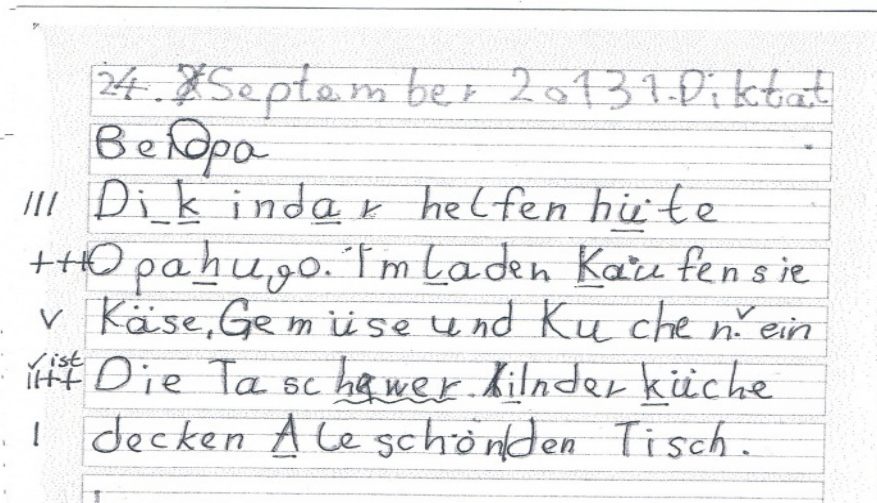 24. September 2013 1. Diktat
Bei Opa
/// Di kindar helfen hüte
+++ Opa hugo. Im Laden Kaufen sie
v Käse, Gemüse und Kuchen. v ein
v ist
Die Tasche wer. kilnder küche
| decken Ale schön den Tisch.